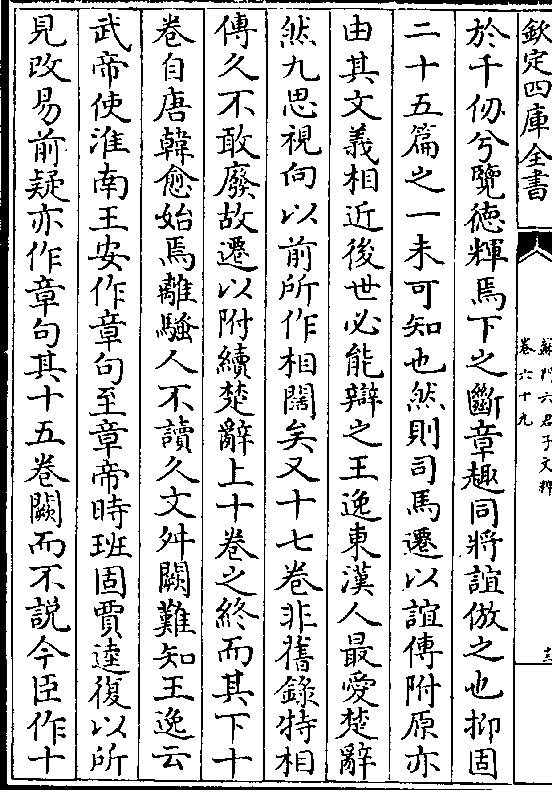 欽定四庫全書
蘇門六君子文粹
卷六十九
於千仞兮覽德輝焉下之斷章趣同將誼倣之也抑固
二十五篇之一未可知也然則司馬遷以誼傳附原亦
由其文義相近後世必能辯之王逸東漢人最愛楚辭
然九思視向以前所作相闊矣又十七卷非舊錄特相
傳久不敢廢故遷以附續楚辭上十卷之終而其下十
卷自唐韓愈始焉離騷人不讀久文舛闕難知王逸云
武帝使淮南王安作章句至章帝時班固賈逵復以所
見改易前疑亦作章句其十五卷闕而不說今臣作十